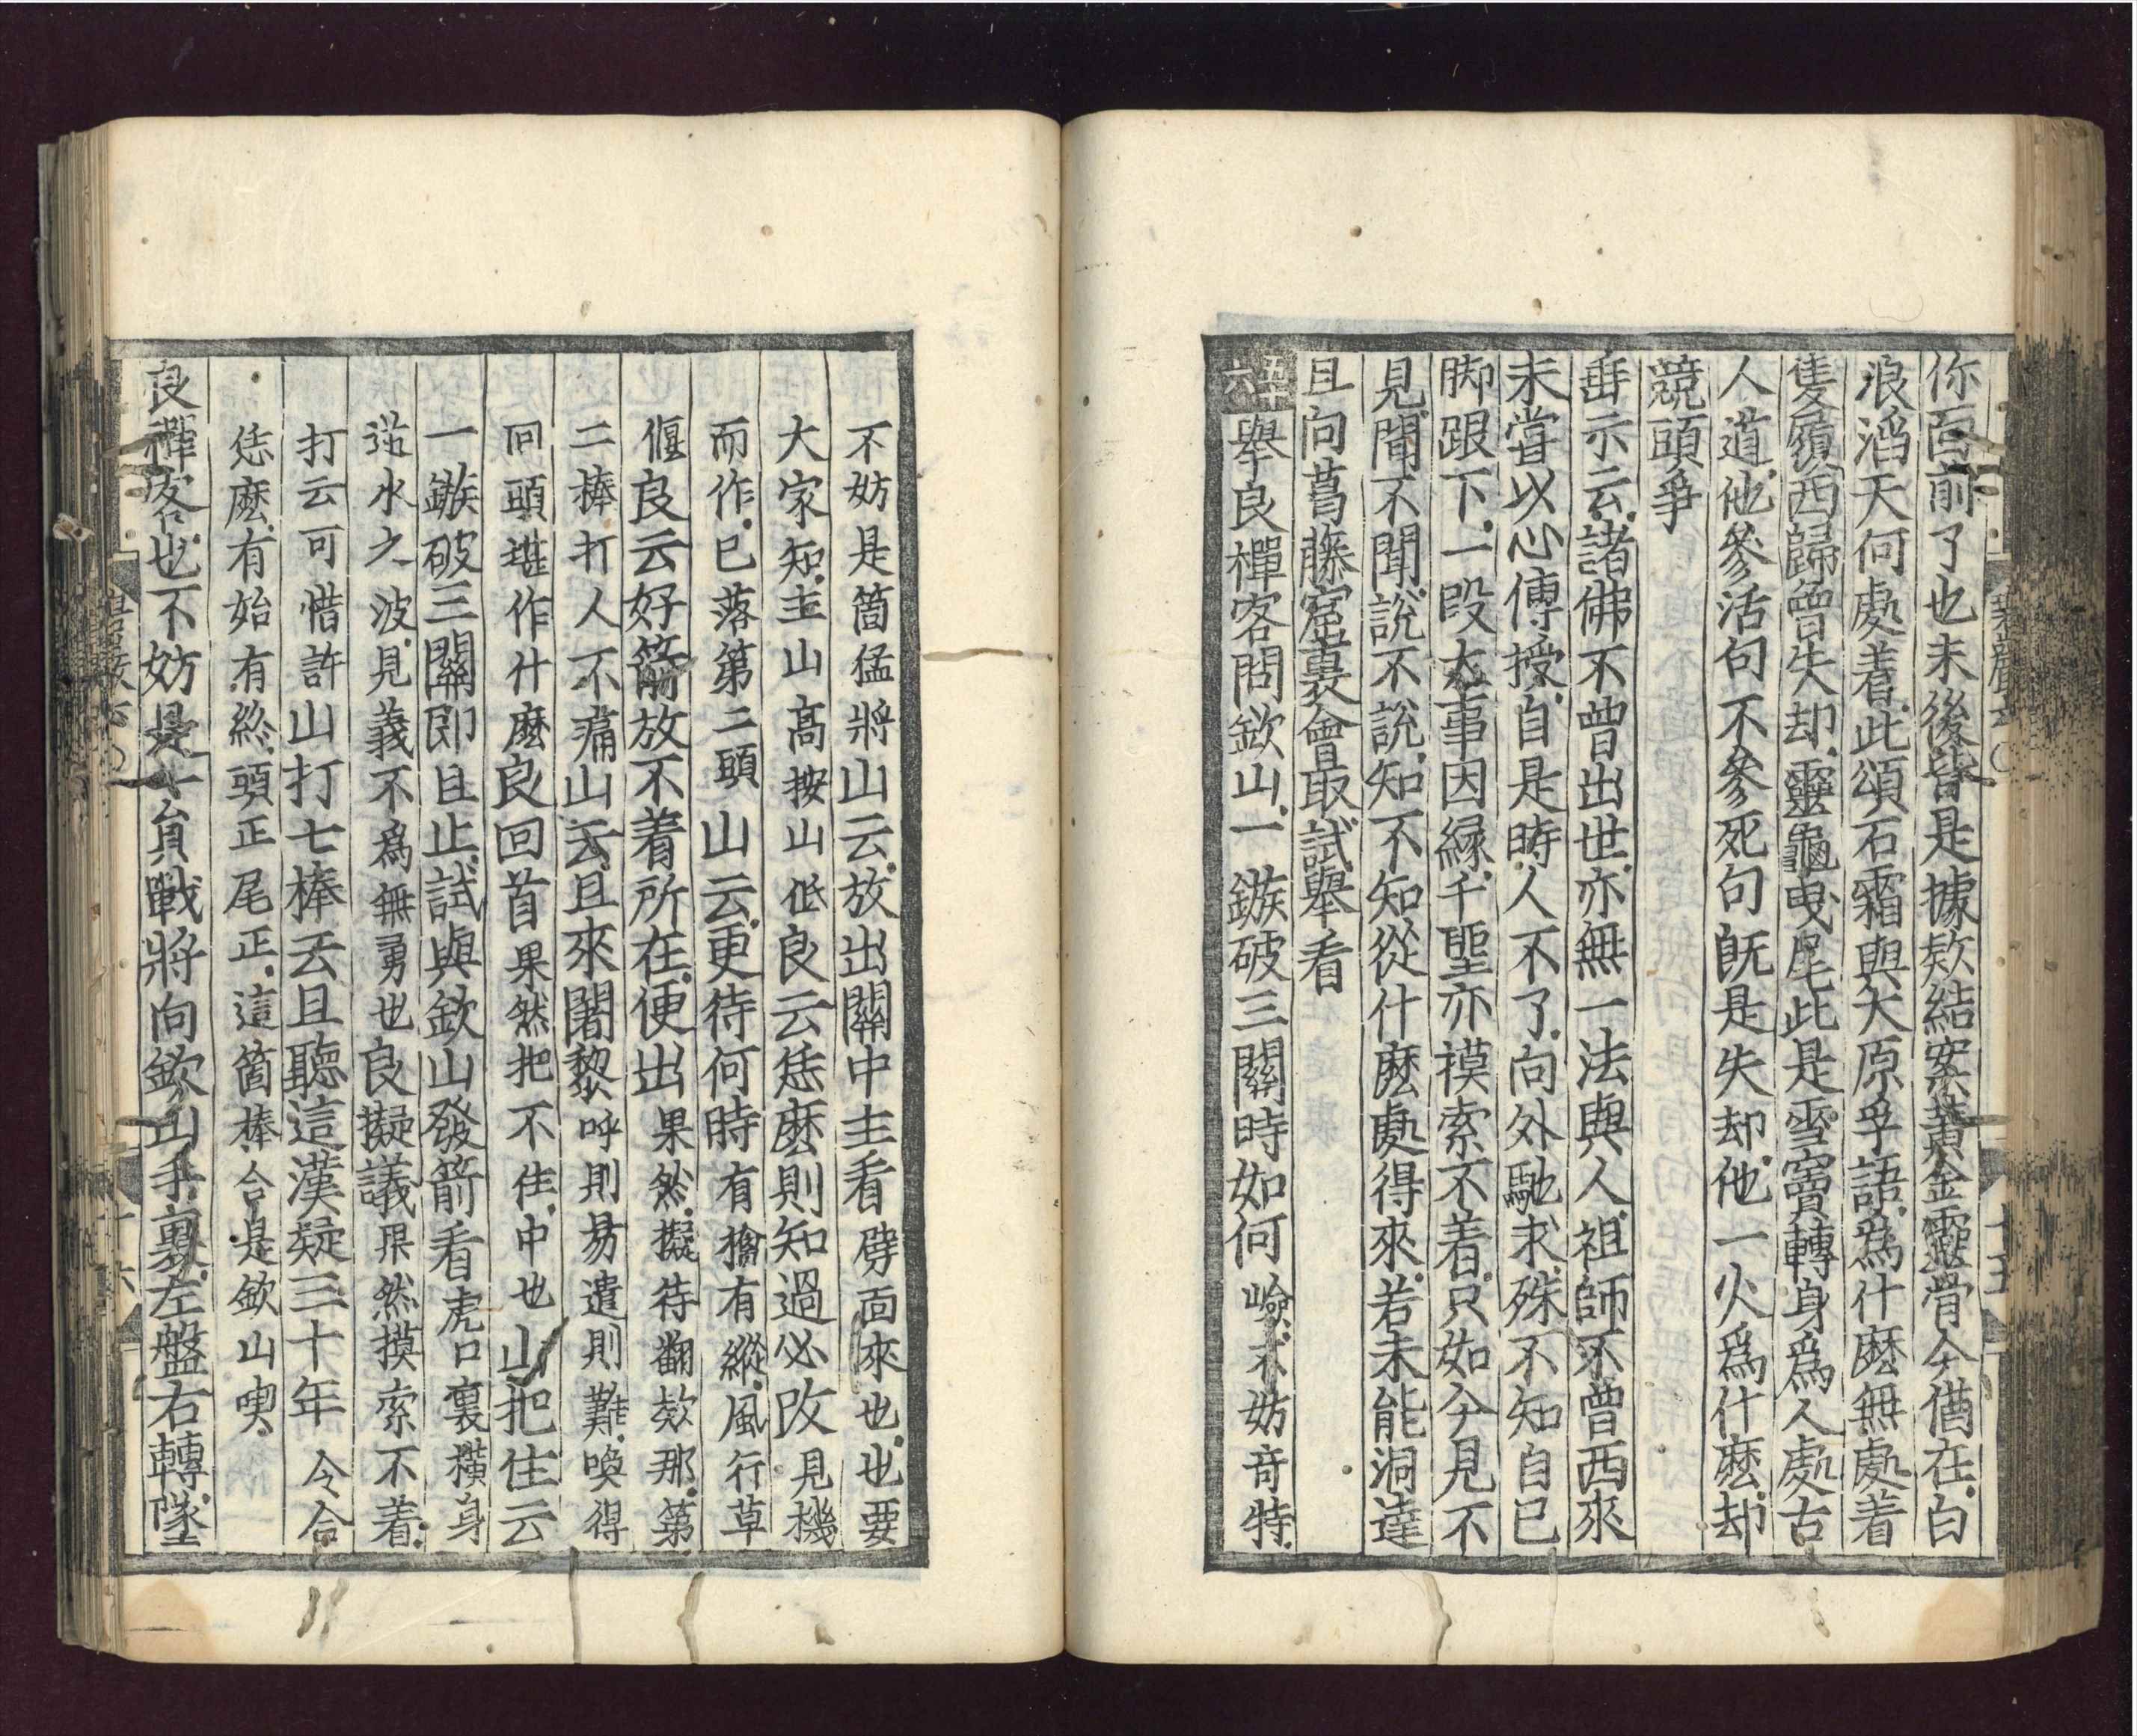 你面前了也末後皆是據欵結案黃金靈骨今猶在白
浪滔天何處着此頌石霜與大原孚語爲什麽無處着
隻履西歸曾失却靈龜曳尾此是雪竇轉身爲人處古
人道他參活句不參死句旣是失却他一火爲什麽却
競頭爭
垂示云諸佛不曾出世亦無一法與人祖師不曾西來
未嘗以心傳授自是時人不了向外馳求殊不知自已
脚跟下一段大事因緣千聖亦摸索不着只如今見不
見聞不聞說不說知不知從什麽處得來若未能洞達
且向葛藤窟裏會取試舉看
五十六舉良禪客問欽山一鏃破三關時如何嶮不妨奇特
不妨是箇猛將山云放出關中主看劈面來也也要
大家知主山高按山低良云恁麽則知過必改見機
而作已落第二頭山云更待何時有擒有縱風行草
偃良云好箭放不着所在便出果然擬待翻欵那第
二棒打人不痛山云且來闍黎呼則易遣則難喚得
回頭堪作什麽良回首果然把不住中也山把住云
一鏃破三關即且止試與欽山發箭看虎口裏橫身
逆水之波見義不爲無勇也良擬議果然摸索不着
打云可惜許山打七棒云且聽這漢疑三十年令合
恁麽有始有終頭正尾正這箇棒合是欽山喫
良禪客也不妨是一員戰將向欽山手裏左盤右轉墜